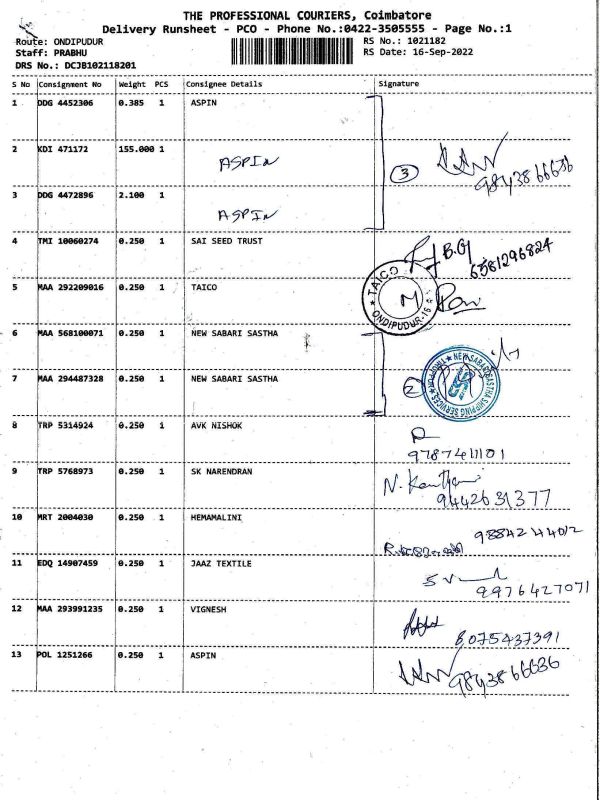 THE PROFESSIONAL COURIERS, Coimbatore
Delivery Runsheet - PCO - Phone No.:0422-3505555 - Page No.:1
Route: ONDIPUDUR
RS No.: 1021182
Staff: PRABHU
RS Date: 16-Sep-2022
DRS No.: DCJB102118201
S No Consignment No Weight PCS Consignee Details Signature
1 DDG 4452306 0.385 1 ASPIN
2 KDI 471172 155.000 1 ASPIN
3 9843866636
3 DDG 4472896 2.100 1 ASPIN
4 TMI 10060274 0.250 1 SAI SEED TRUST B.G 6381296824
5 MAA 292209016 0.250 1 TAICO
TAICO ONDIPUDUR-16
6 MAA 568100071 0.250 1 NEW SABARI SASTHA
7 MAA 294487328 0.250 1 NEW SABARI SASTHA
2
NEW SABARI SASTHA SHIPPING SERVICES
8 TRP 5314924 0.250 1 AVK NISHOK
9787411101
9 TRP 5768973 0.250 1 SK NARENDRAN
9442631377
10 MRT 2004030 0.250 1 HEMAMALINI
9884244012
11 EDQ 14907459 0.250 1 JAAZ TEXTILE
9976427071
12 MAA 293991235 0.250 1 VIGNESH
8075437391
13 POL 1251266 0.250 1 ASPIN
9843866636